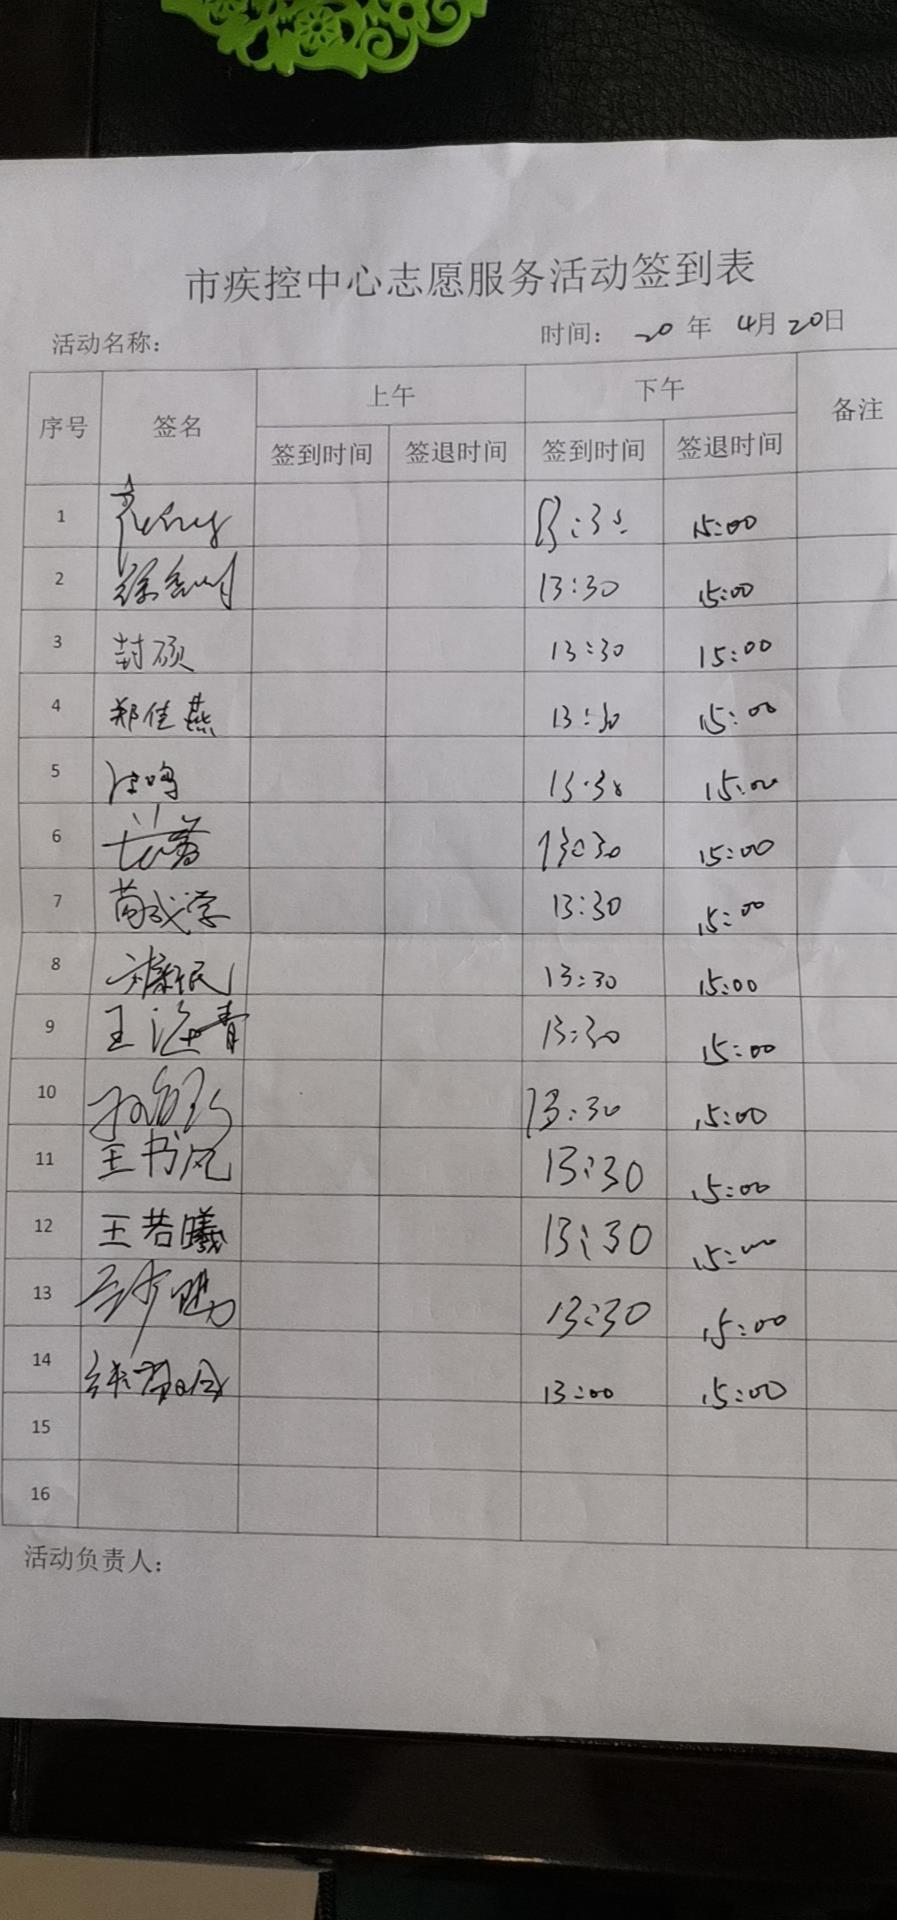 市疾控中心志愿服务活动签到表
活动名称： 时间： 20 年 4月 20日
序号 签名 上午 下午 备注
签到时间 签退时间 签到时间 签退时间
1 15:00
2 13:30 15:00
3 封硕 13:30 15:00
4 郑佳燕 13:30 15:00
5 13:30 15:00
6 13:30 15:00
7 苗成学 13:30 15:00
8 13:30 15:00
9 王海青 13:30 15:00
10 13:30 15:00
11 王书风 13:30 15:00
12 王若曦 13:30 15:00
13 13:30 15:00
14 13:00 15:00
15
16
活动负责人：